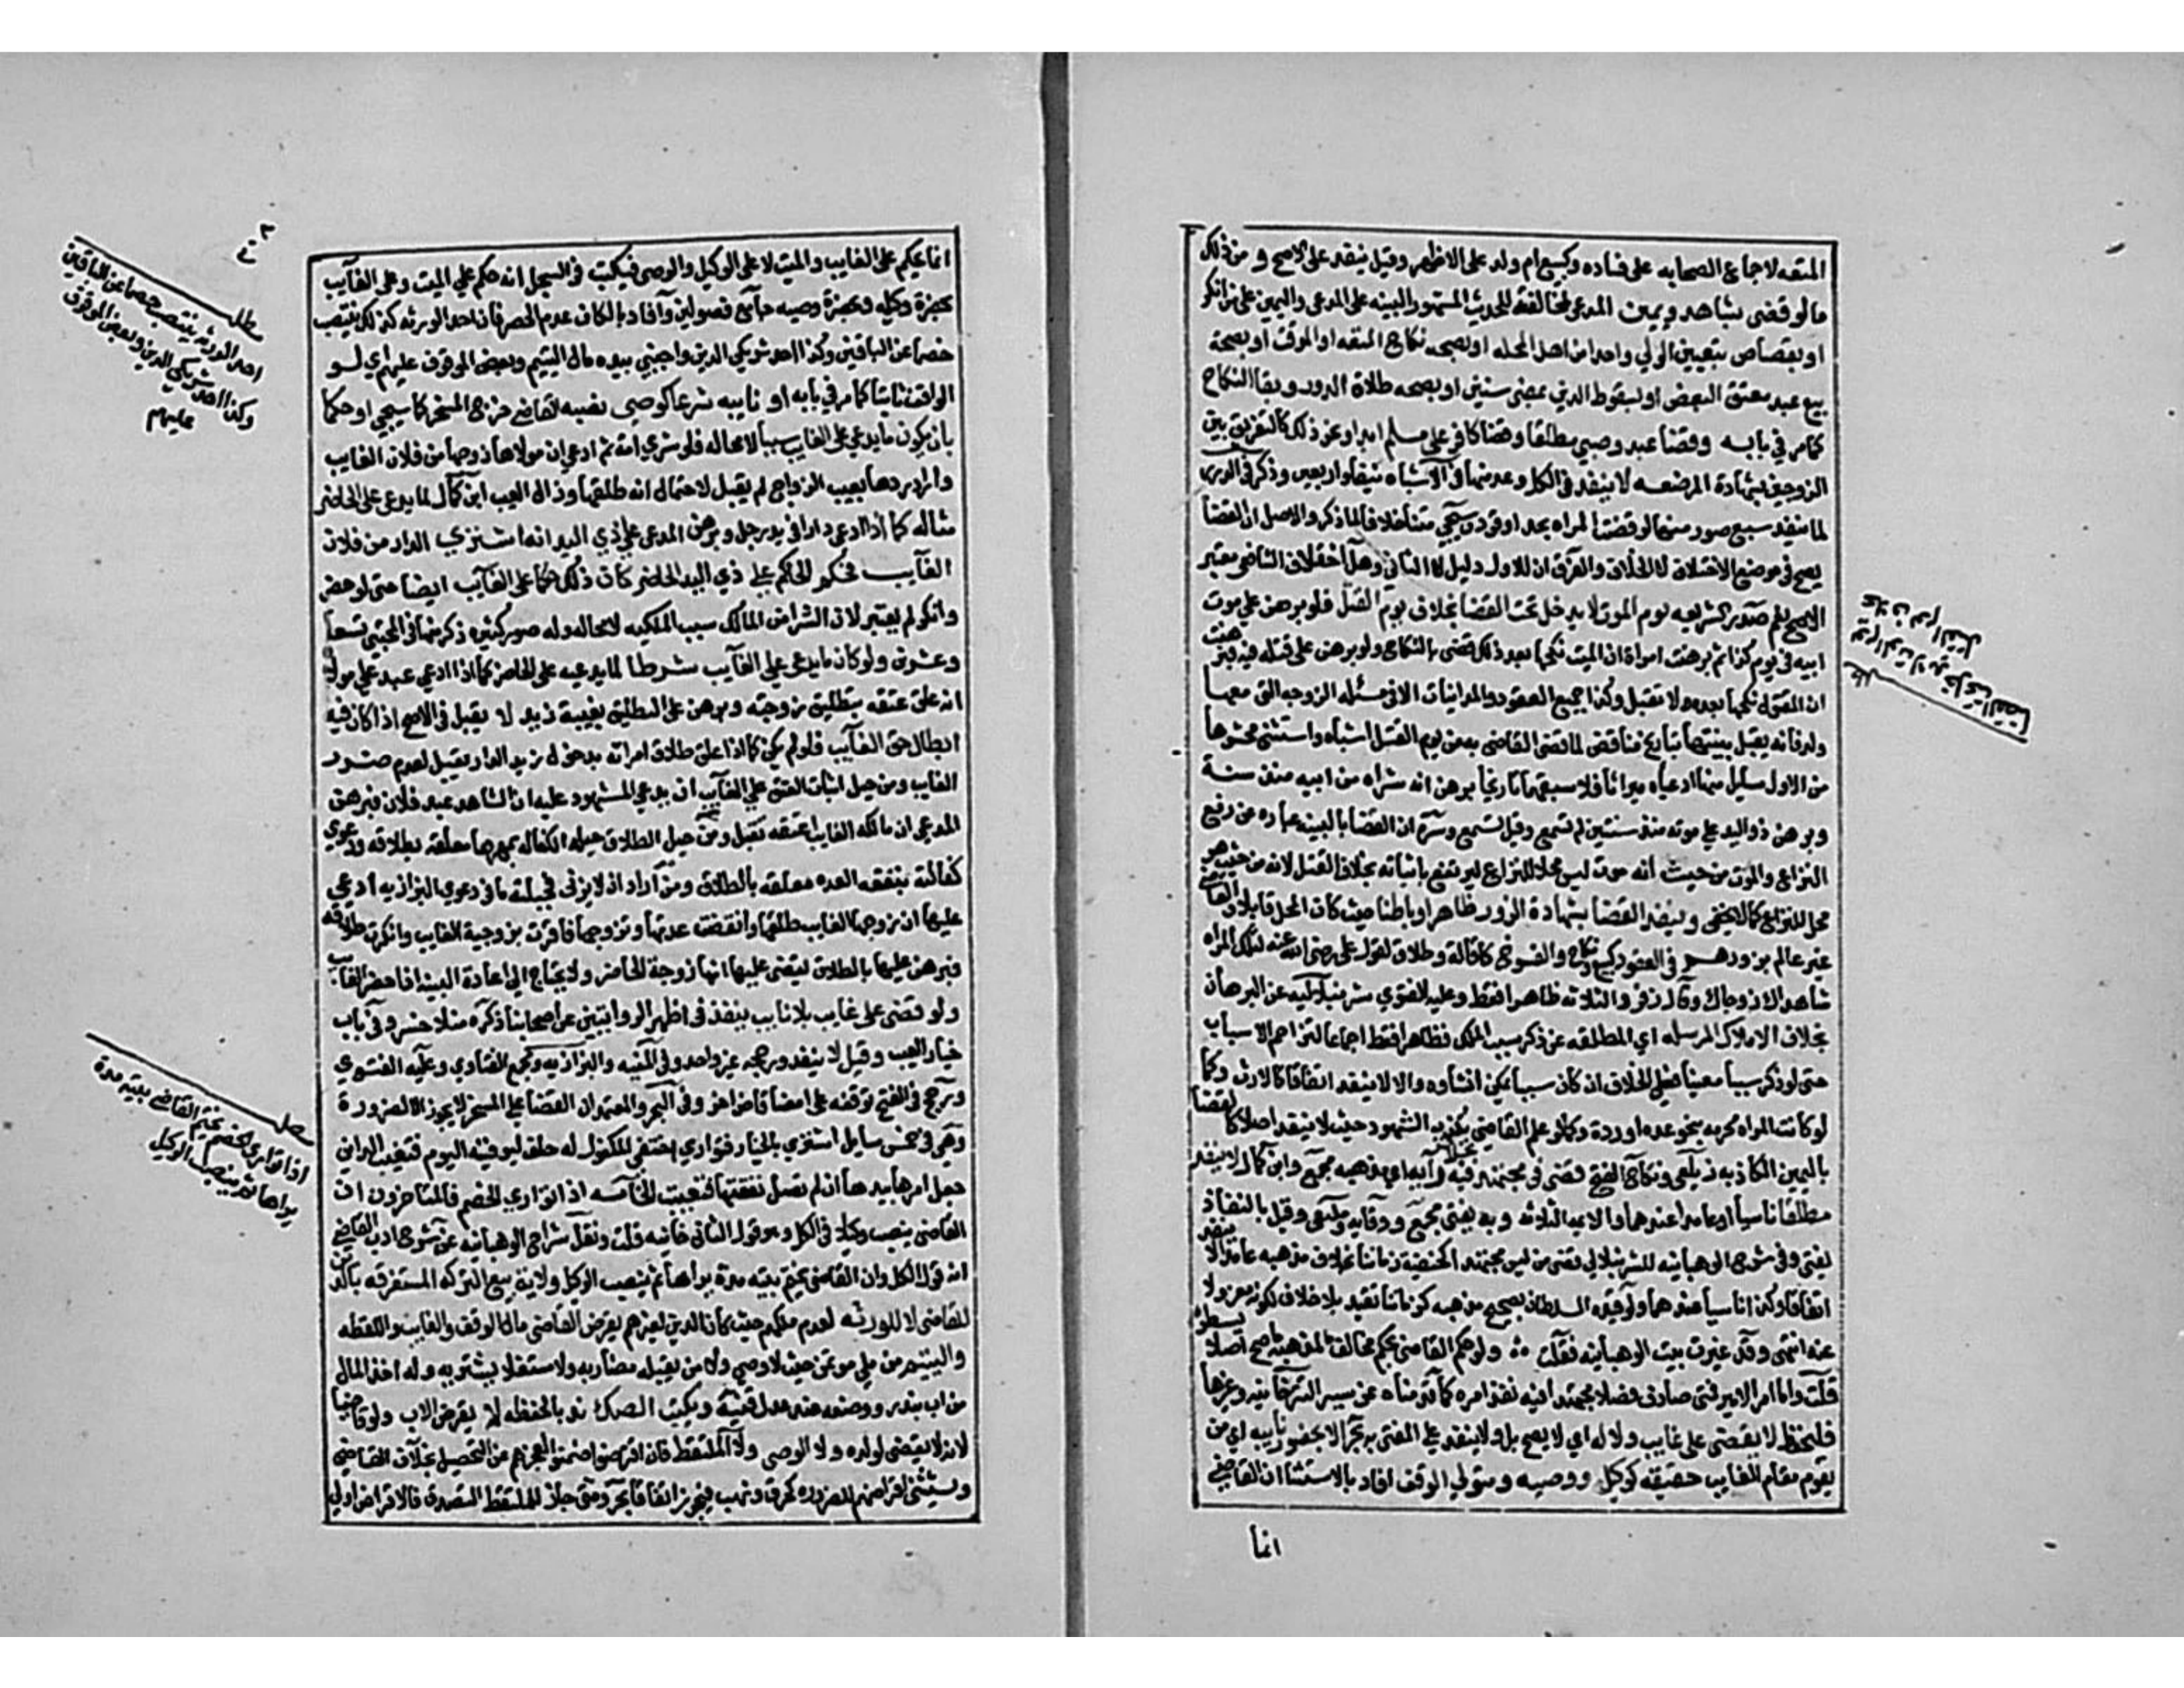 المتعه لاجماع الصحابه على فساده وكبيع ام ولد على الاظهر وقيل ينفذ على الاصح و من ذلك
ما لو قضى بشاهد ويمين المدعي لمخالفته للحديث المشهور البينه على المدعي واليمين على من انكر
او بقصاص بتعيين الولي واحدا من اهل المحله او بصحه نكاح المتعه او الموقت او بصحة
بيع عبد معتق البعض او بسقوط الدين بمضي سنين او بصحه طلاق الدور وبقا النكاح
كما مر في بابه وقضا عبد وصبي مطلقا وقضا كافر على مسلم ابدا ونحو ذلك كالتفريق بين
الزوجين بشهادة المرضعه لا ينفذ في الكل وعد منها في الاشباه نيفا واربعين وذكر في الدرر
لما ينفذ سبع صور منها لو قضت المراه بحد او قود وسيجي متنا خلافا لما ذكر والاصل ان القضا
يصح في موضع الاختلاف لا الخلاف والفرق ان للاول دليل لا الثاني وهل اختلاف الشافعي معتبر
الاصح نعم صدر الشريعه يوم الموت لا يدخل تحت القضا بخلاف يوم القتل فلو برهن على موت
ابيه في يوم كذا ثم برهنت امراة ان الميت نكحها بعد ذلك قضى بالنكاح ولو برهن على قتله فيه فبرهنت
ان المقتول نكحها بعده لا تقبل وكذا جميع العقود والمداينات الا في مسئله الزوجه التي معها
ولد فانه يقبل بينتها بتاريخ مناقض لما قضى القاضي به من يوم القتل اشباه واستثنى محشوها
من الاول مسايل منها ادعياه ميراثا فلا سبقهما تاريخا برهن انه شراه من ابيه منذ سنة
وبرهن ذو اليد على موته منذ سنتين لم تسمع وقيل تسمع وسره ان القضا بالبينه عباره عن رفع
النزاع والموت من حيث انه موت ليس محلا للنزاع ليرتفع باثباته بخلاف القتل لانه من حيث هو
محل للنزاع كما لا يخفى وينفذ القضا بشهادة الزور ظاهرا وباطنا حيث كان المحل قابلا والقاضي
غير عالم بزورهم في العقود كبيع ونكاح والفسوخ كاقالة وطلاق لقول علي رضي الله عنه لتلك المراه
شاهداك زوجاك وقال زفر والثلاثه ظاهرا فقط وعليه الفتوي شرنبلاليه عن البرهان
بخلاف الاملاك المرسله اي المطلقه عن ذكر سبب الملك فظاهرا فقط اجماعا لتزاحم الاسباب
حتى لو ذكر سببا معينا فعلى الخلاف ان كان سببا يمكن انشاوه والا لا ينفذ اتفاقا كالارث وكما
لو كانت المراه محرمه بنحو عده او ردة وكما لو علم القاضي بكذبه الشهود حيث لا ينفذ اصلا كالقضا
باليمين الكاذبه زيلعي ونكاح الفتح قضى في مجتهد فيه بخلاف رايه اي مذهبه مجمع وابن كمال لا ينفذ
مطلقا ناسيا او عامدا عندهما والايمه الثلاثه وبه يفتى مجمع ووقايه وملتقى وقيل بالنفاذ
يفتى وفي شرح الوهبانيه للشرنبلالي قضى من ليس مجتهدا كحنفية زماننا بخلاف مذهبه عامدا لا ينفذ
اتفاقا وكذا ناسيا عندهما ولو قيده السلطان بصحيح مذهبه كزماننا تقيد بلا خلاف لكونه معزولا
عنه انتهى وقد غيرت بيت الوهبانيه فقلت ه ولو حكم القاضي بحكم مخالف لمذهبه ما صح اصلا يسطر
قلت واما امر الامير فمتى صادف فصلا مجتهدا فيه نفذ امره كما قدمناه عن سير التترخانيه وغيرها
فليحفظ لا يقضي على غايب ولا له اي لا يصح بل ولا ينفذ على المفتى به بحر الا بحضور نايبه اي من
يقوم مقام الغايب حقيقه كوكيل ووصيه ومتولي الوقف افاد بالاستثنا ان القاضي
انما
مطلب
القضا
انما يحكم على الغايب والميت لا على الوكيل والوصي فيكتب في السجل انه حكم علي الميت وعلى الغايب
بحضرة وكيله وبحضرة وصيه جامع فصولين وافاد بالكاف عدم الحصر فان احد الورثه كذلك ينتصب
خصما عن الباقين وكذا احد شريكي الدين واجنبي بيده مال اليتيم وبعض الموقوف عليهم اي لو
الوقف ثابتا كما مر في بابه او نايبه شرعا كوصي نصبه القاضي خرج المسخر كما سيجي او حكما
بان يكون ما يدعي على الغايب سببا لا محاله فلو شري امة ثم ادعي ان مولاها زوجها من فلان الغايب
واراد ردها بعيب الزواج لم يقبل لاحتمال انه طلقها وزال العيب ابن كمال لما يدعى على الحاضر
مثاله كما اذا ادعى دارا في يد رجل وبرهن المدعى علي ذي اليد انه اشتري الدار من فلان
الغايب فحكم الحاكم على ذي اليد الحاضر كان ذلك حكما على الغايب ايضا حتى لو حضر
وانكر لم يعتبر لان الشرا من المالك سبب الملكيه لا محاله وله صور كثيره ذكر منها في المجتبى تسعا
وعشرون ولو كان ما يدعى على الغايب شرطا لما يدعيه على الحاضر كما اذا ادعي عبد علي مولاه
انه علق عتقه بتطليق زوجته وبرهن على التطليق بغيبة زيد لا يقبل في الاصح اذا كان فيه
ابطال حق الغايب فلو لم يكن كما اذا علق طلاق امراته بدخول زيد الدار يقبل لعدم ضرر
الغايب ومن حيل اثبات العتق علي الغايب ان يدعي المشهود عليه ان الشاهد عبد فلان فبرهن
المدعي ان مالكه الغايب اعتقه تقبل ومن حيل الطلاق حيله الكفاله بمهرها معلقه بطلاقه ودعوي
كفالته بنفقه العده معلقه بالطلاق ومن اراد ان لا يزني فحيلته ما في دعوي البزازيه ادعى
عليها ان زوجها الغايب طلقها وانقضت عدتها وتزوجها فاقرت بزوجية الغايب وانكرت طلاقه
فبرهن عليها بالطلاق يقضى عليها انها زوجة الحاضر ولا يحتاج الى اعادة البينه اذا حضر الغايب
ولو قضى على غايب بلا نايب ينفذ في اظهر الروايتين عن اصحابنا ذكره منلا خسرو في باب
خيار العيب وقيل لا ينفذ ورجحه غير واحد وفي المنيه والبزازيه ومجمع الفتاوي وعليه الفتوي
ورجح في الفتح توقفه على امضا قاض اخر وفي البحر والمعتمد ان القضا على المسخر لا يجوز الا لضرورة
وهي في خمس مسايل اشتري بالخيار فتواري اختفى المكفول له حلف ليوفينه اليوم فتغيب الداين
جعل امرها بيدها ان لم تصل نفقتها فتغيبت الخامسه اذا تواري الخصم فالمتاخرون ان
القاضي ينصب وكيلا في الكل وهو قول الثاني خانيه قلت ونقل شراح الوهبانيه عن شروح ادب القاضي
انه قول الكل وان القاضي يختم بيته مدة يراها ثم ينصب الوكيل ولاية بيع التركه المستغرقه بالدين
للقاضي لا للورثه لعدم ملكهم حيث كان الدين لغيرهم يقرض القاضي مال الوقف والغايب واللقطه
واليتيم من ملي موتمن حيث لا وصي ولا من يقبله مضاربه ولا مستغلا يشتريه وله اخذ المال
من اب مبذر ووضعه عند عدل قنيه ويكتب الصك ندبا ليحفظه لا يقرض الاب ولو قاضيا
لانه لا يقضى لولده ولا الوصي ولا الملتقط فان اقرضوا ضمنوا لعجزهم عن التحصيل بخلاف القاضي
ويستثنى اقراضهم للضروره كحرق ونهب فيجوز اتفاقا بحر ومتى جاز للملتقط التصدق فالاقراض اولى
مطلب
احد الورثه ينتصب خصما عن الباقين
وكذا احد شريكي الدين وبعض الموقوف
عليهم
مطلب
اذا تواري الخصم يختم القاضي بيته مدة
يراها ثم ينصب الوكيل